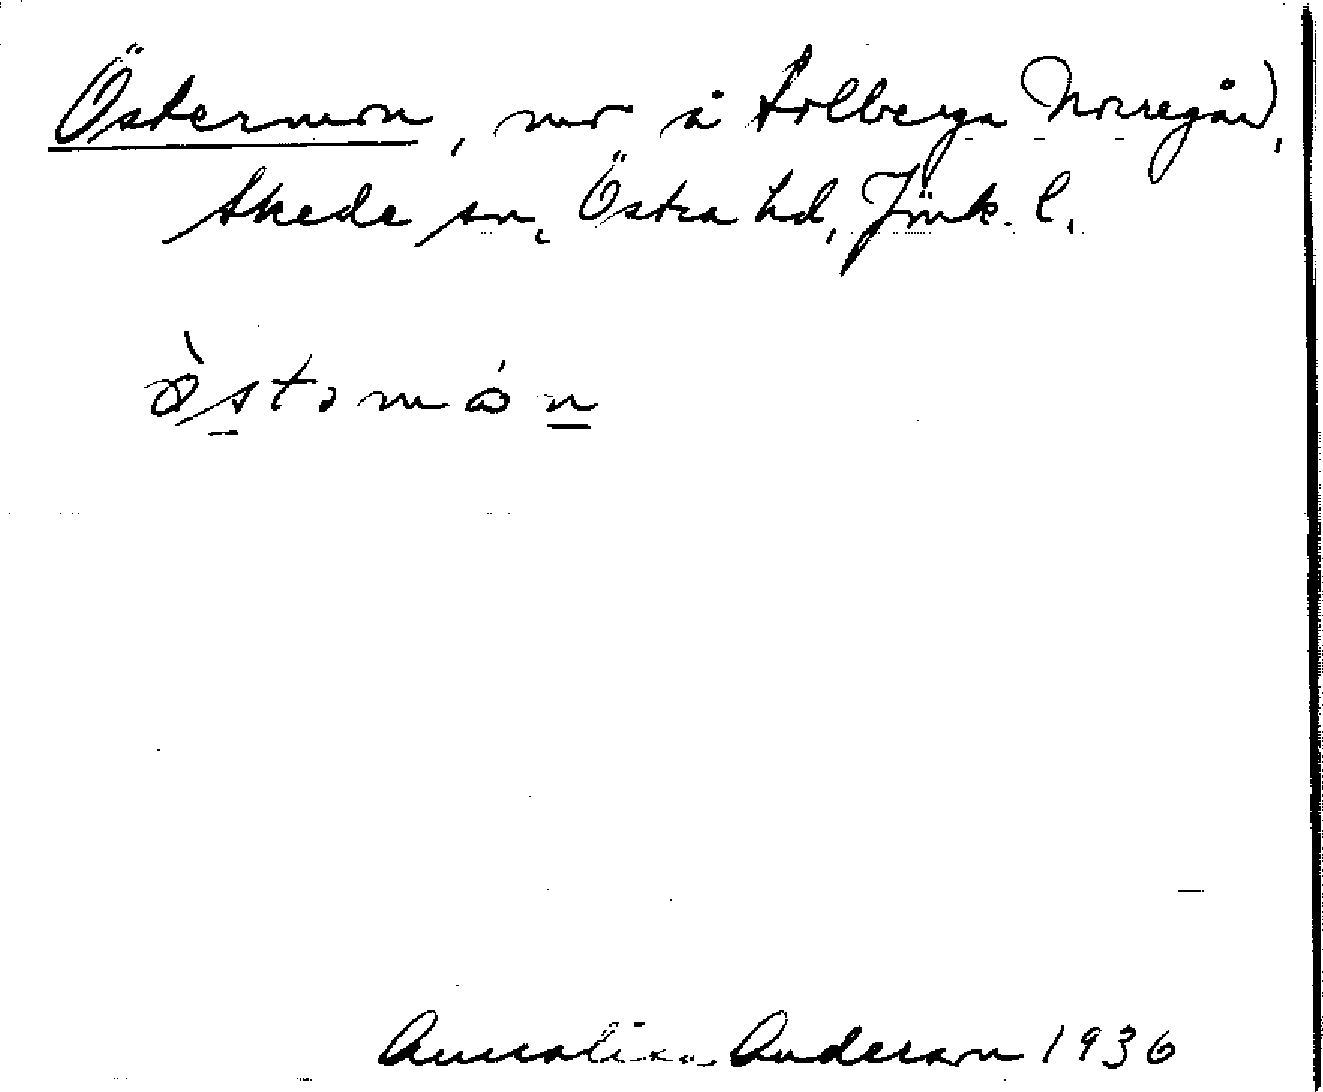 Östermon, mo å Solberga Norregård,
Skede sn, Östra hd, Jönk. l.
Annalisa Anderson 1936